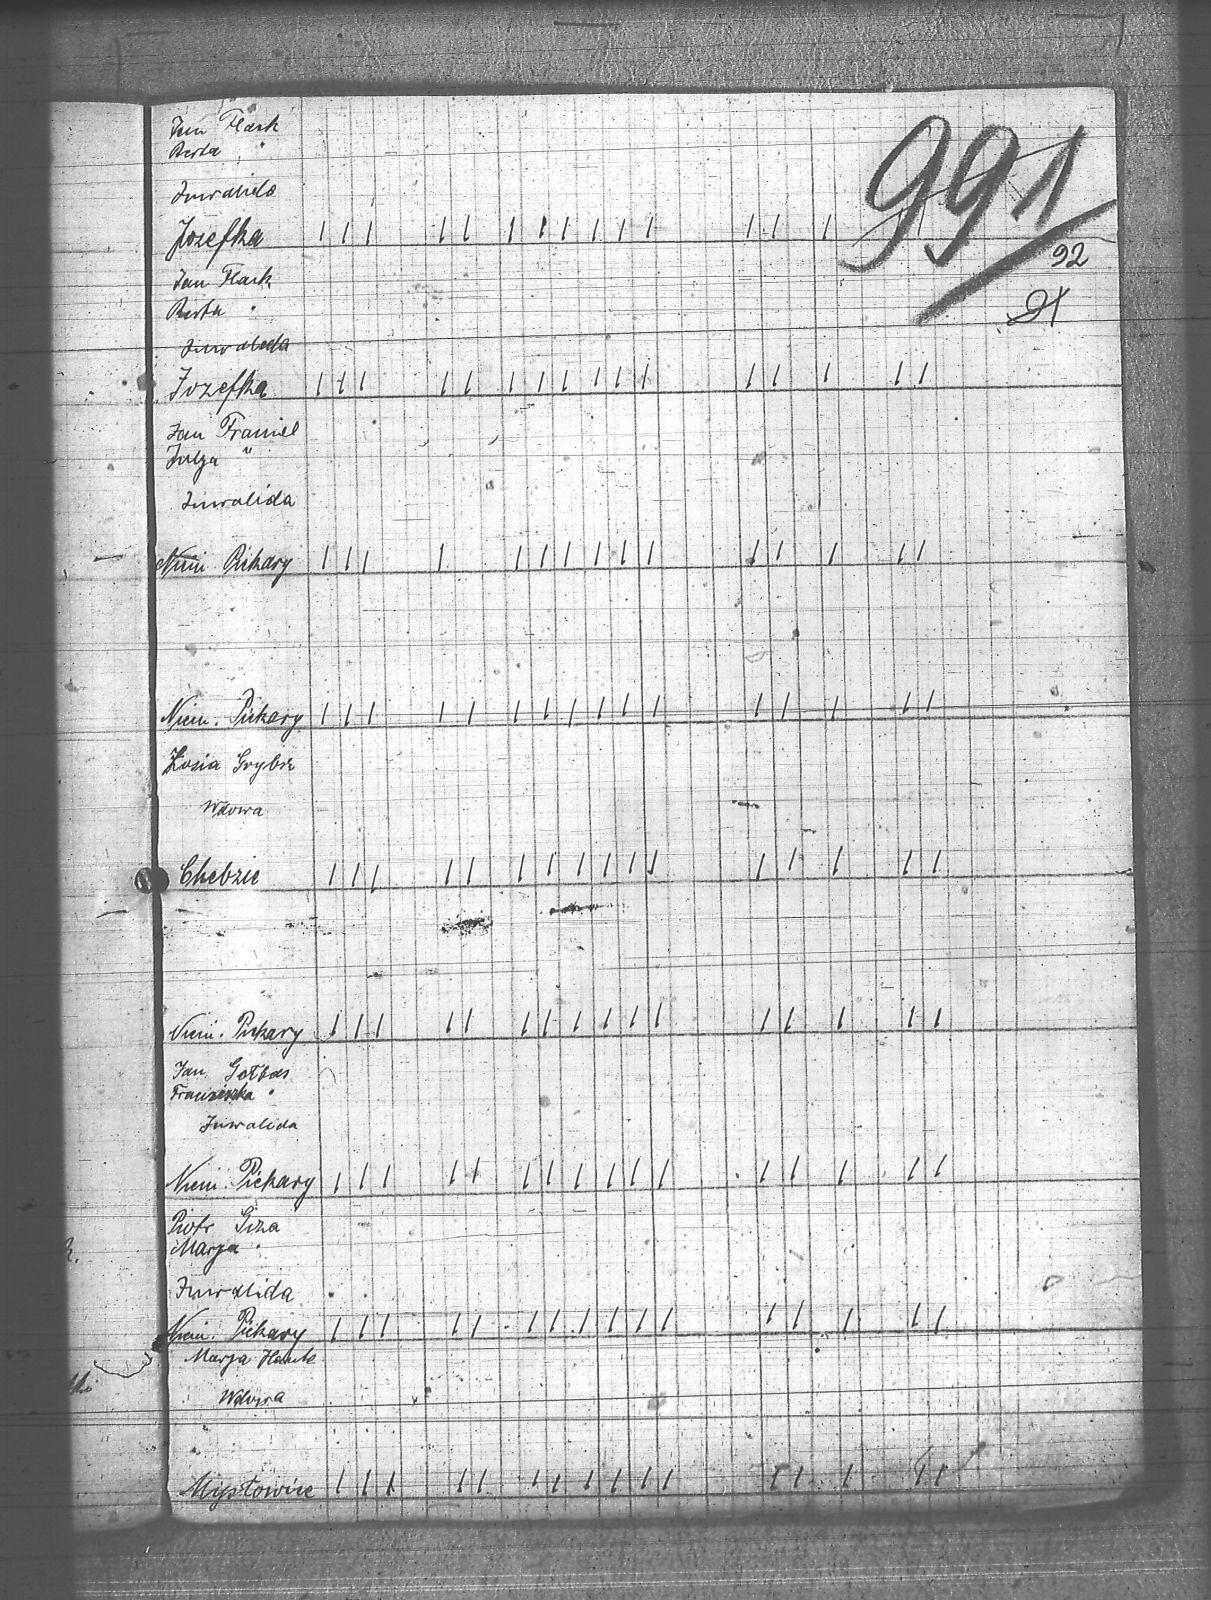 Jan Flack
Berta "
Inwalida
Jozefka
991
92
Jan Flack
Berta "
Inwalida
Jozefka
Jan Franiel
Julja "
Inwalida
Niem Piekary
Niem. Piekary
Zosia Grybsz
Wdowa
Chebzie
Niem. Piekary
Jan Gołbas
Franciszka "
Inwalida
Niem. Piekary
Piotr Giza
Marja "
Inwalida
Niem. Piekary
Marja
Wdowa
Mysłowice